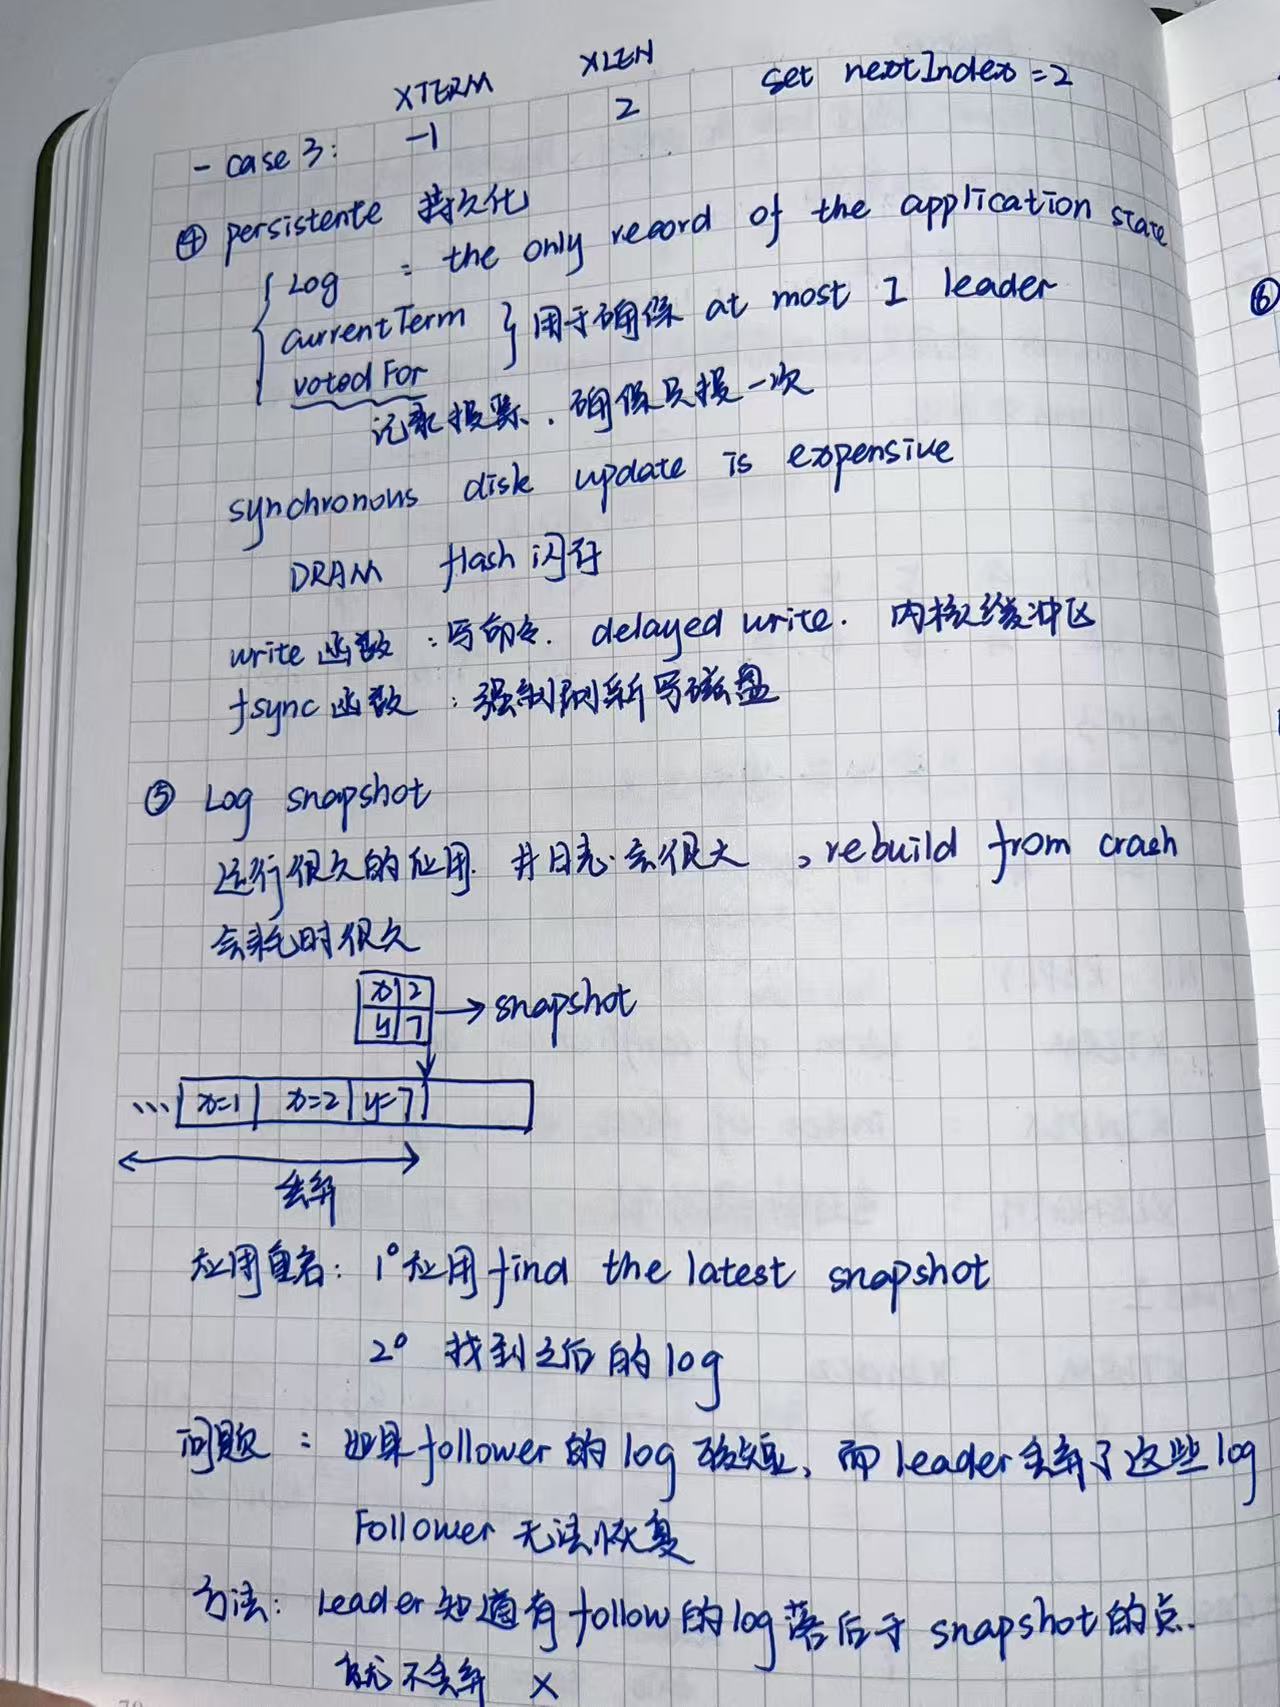 XTERM XLEN set nextIndex=2
- case 3: -1 2
④ persistente 持久化
Log : the only record of the application state
currentTerm } 用于确保 at most 1 leader
votedFor
记录投票，确保只投一次
synchronous disk update is expensive
DRAM flash 闪存
write函数：写命令. delayed write. 内核缓冲区
fsync函数：强制刷新写磁盘
⑤ Log snapshot
运行很久的应用. 其日志会很大，rebuild from crash
会耗时很久
x 2
y 7 → snapshot
... x=1 x=2 y=7
丢弃
应用重启：1° 应用find the latest snapshot
2° 找到之后的log
问题：如果follower的log较短，而leader丢弃了这些log
Follower 无法恢复
方法：Leader知道有follow的log落后于snapshot的点.
就不丢弃 ×
⑥